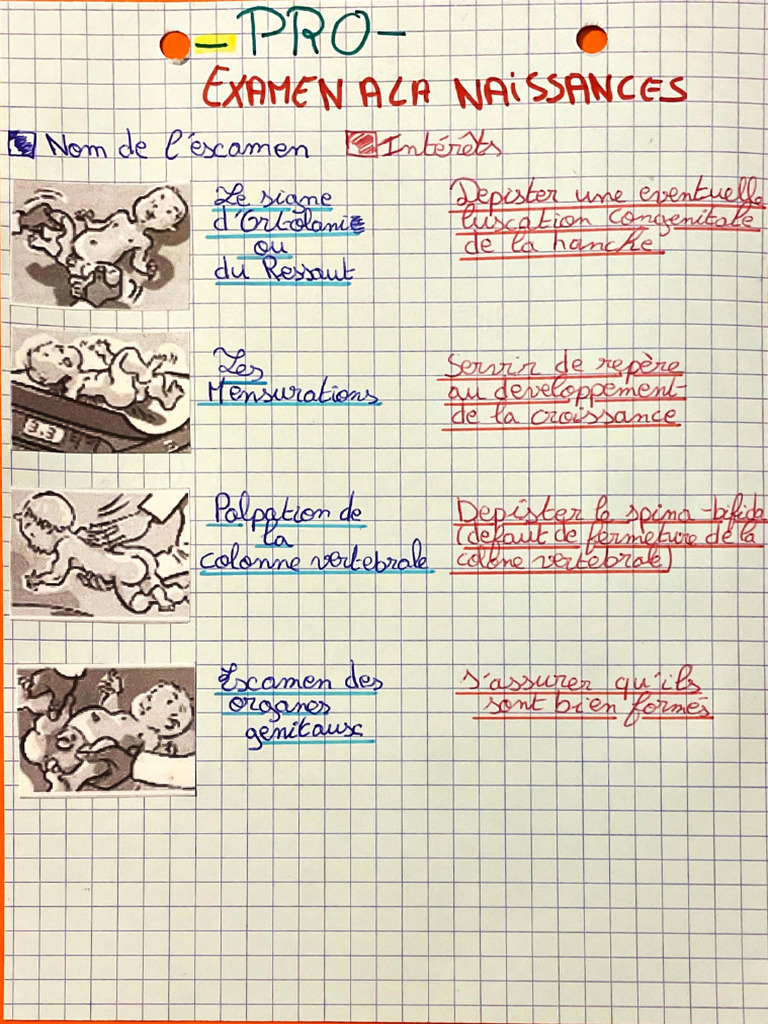 - PRO-
EXAMEN A LA NAISSANCES
Nom de l'éxamen
Intérêts
Le signe
d'Ortolanie
ou
du Ressaut
Depister une eventuelle
luxation congenitale
de la hanche
Les
Mensurations
3.3
Servir de repère
au developpement
de la croissance
Palpation de
la
colonne vertebrale
Depister le spina-bifida
(defaut de fermeture de la
colone vertebrale)
Examen des
organes
genitaux
s'assurer qu'ils
sont bien formés